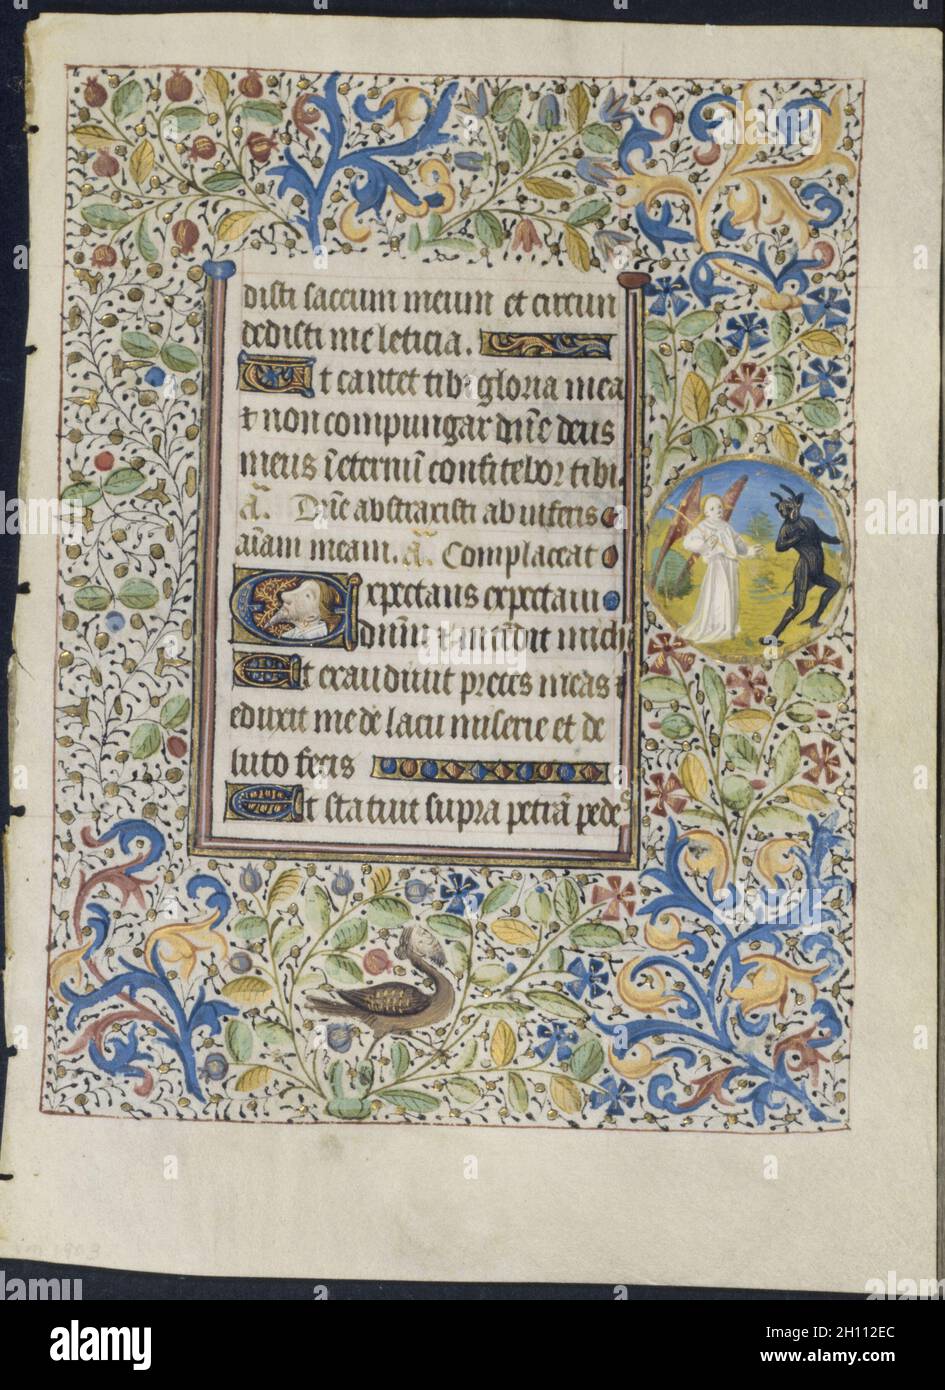 disti saccum meum et circun
dedisti me leticia.
Et cantet tibi gloria mea
et non compungar dñe deus
meus ĩ eternũ confitebor tibi.
Añ. Dñe abstraxisti ab inferis
aĩam meam. Añ. Complaceat
Expectans expectaui
dñm et intendit michi
Et exaudiuit preces meas
eduxit me de lacu miserie et de
luto fecis
Et statuit supra petrã pedes
alamy
Image ID: 2H112EC
www.alamy.com